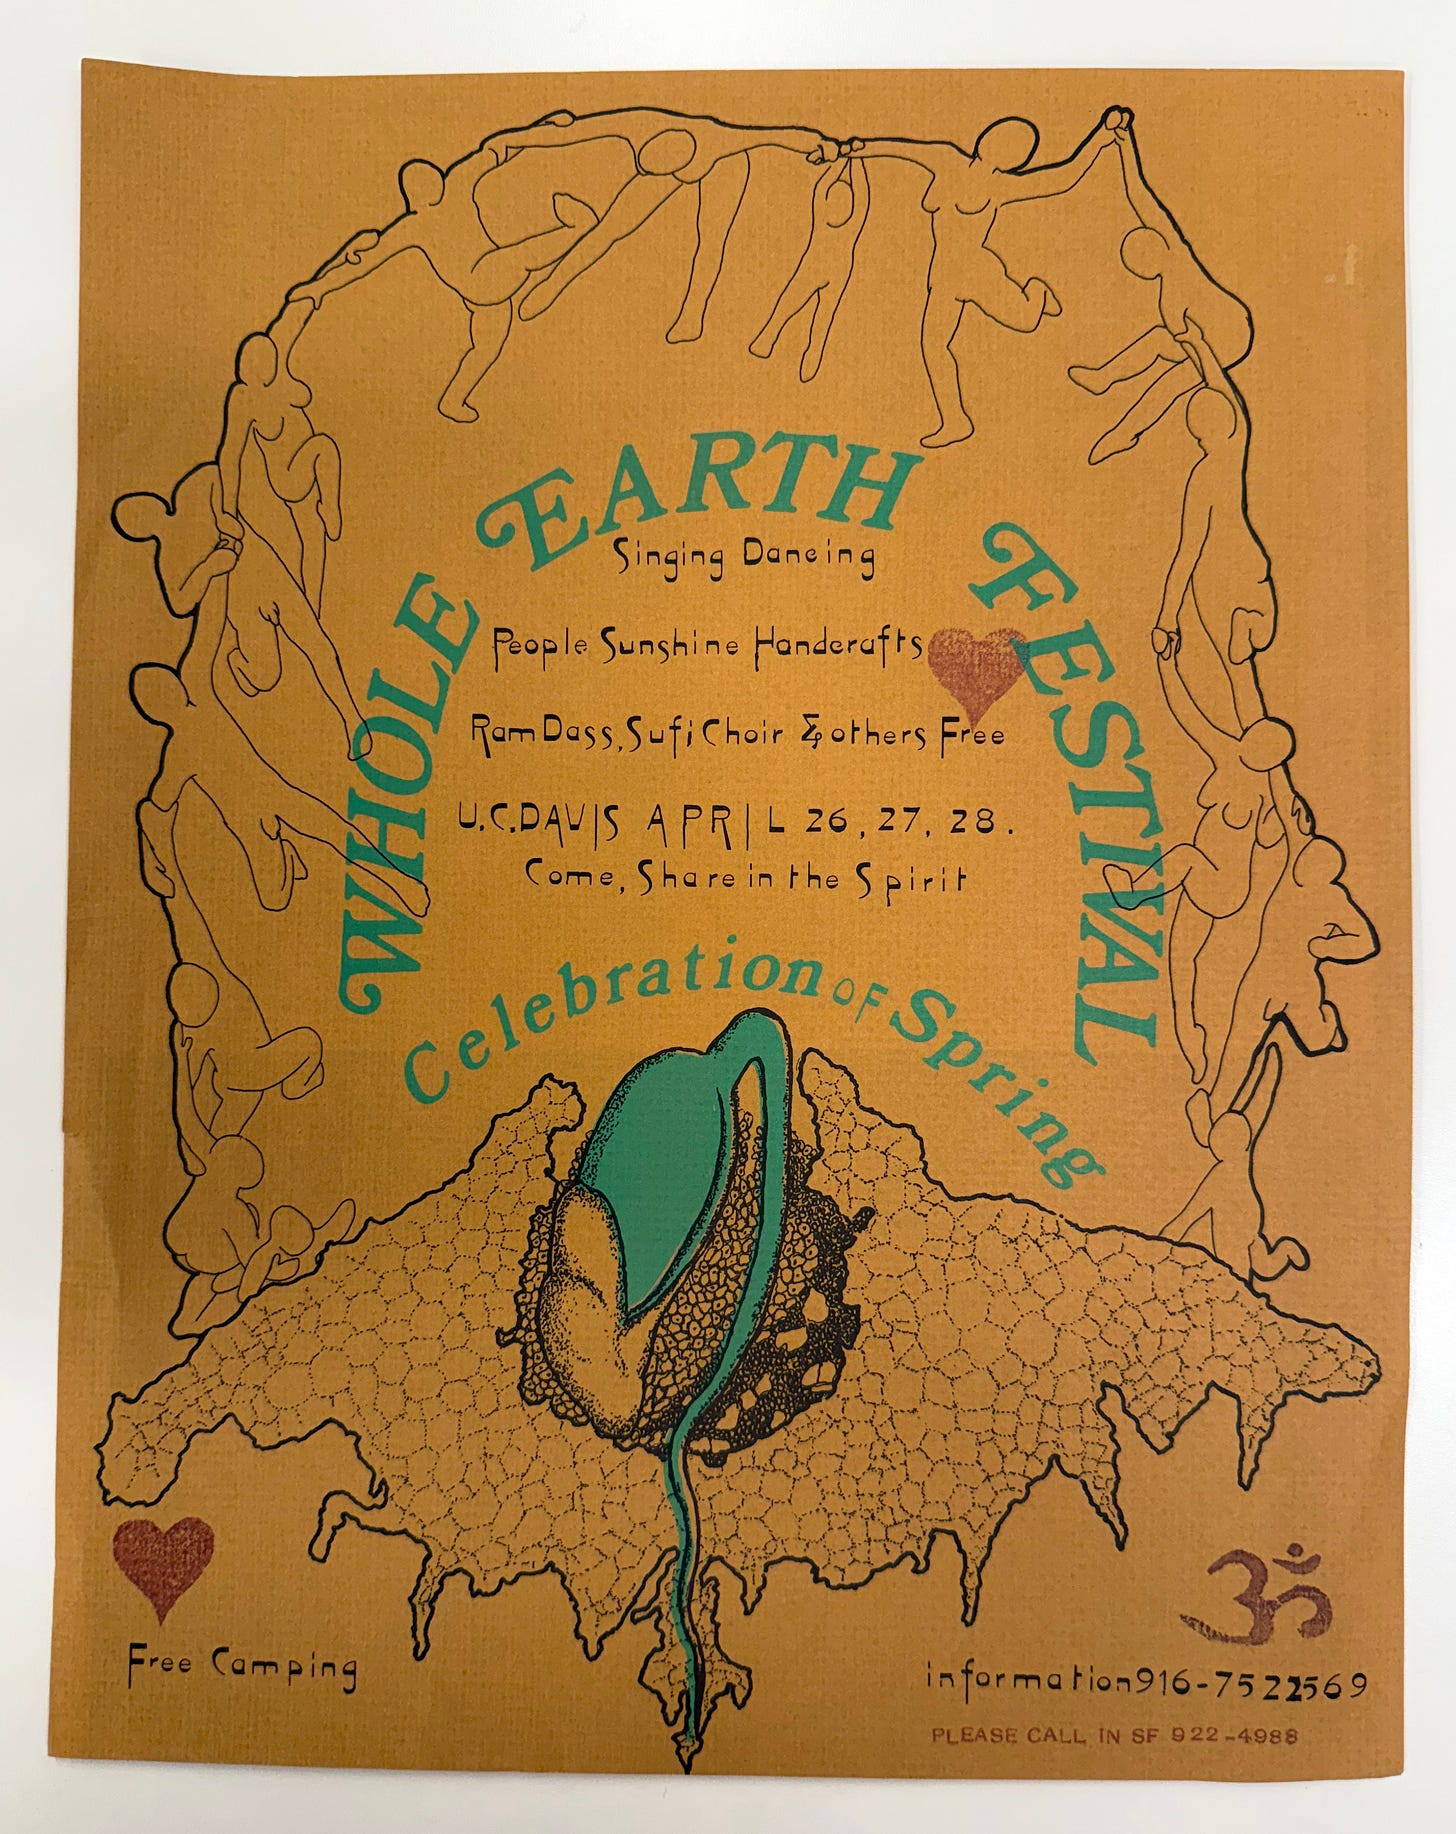 WHOLE EARTH FESTIVAL
Singing Dancing
People Sunshine Handcrafts
Ram Dass, Sufi Choir & others Free
U.C.DAVIS APRIL 26, 27, 28.
Come, Share in the Spirit
Celebration OF Spring
Free Camping
ॐ
information 916-7522569
PLEASE CALL IN SF 922-4988